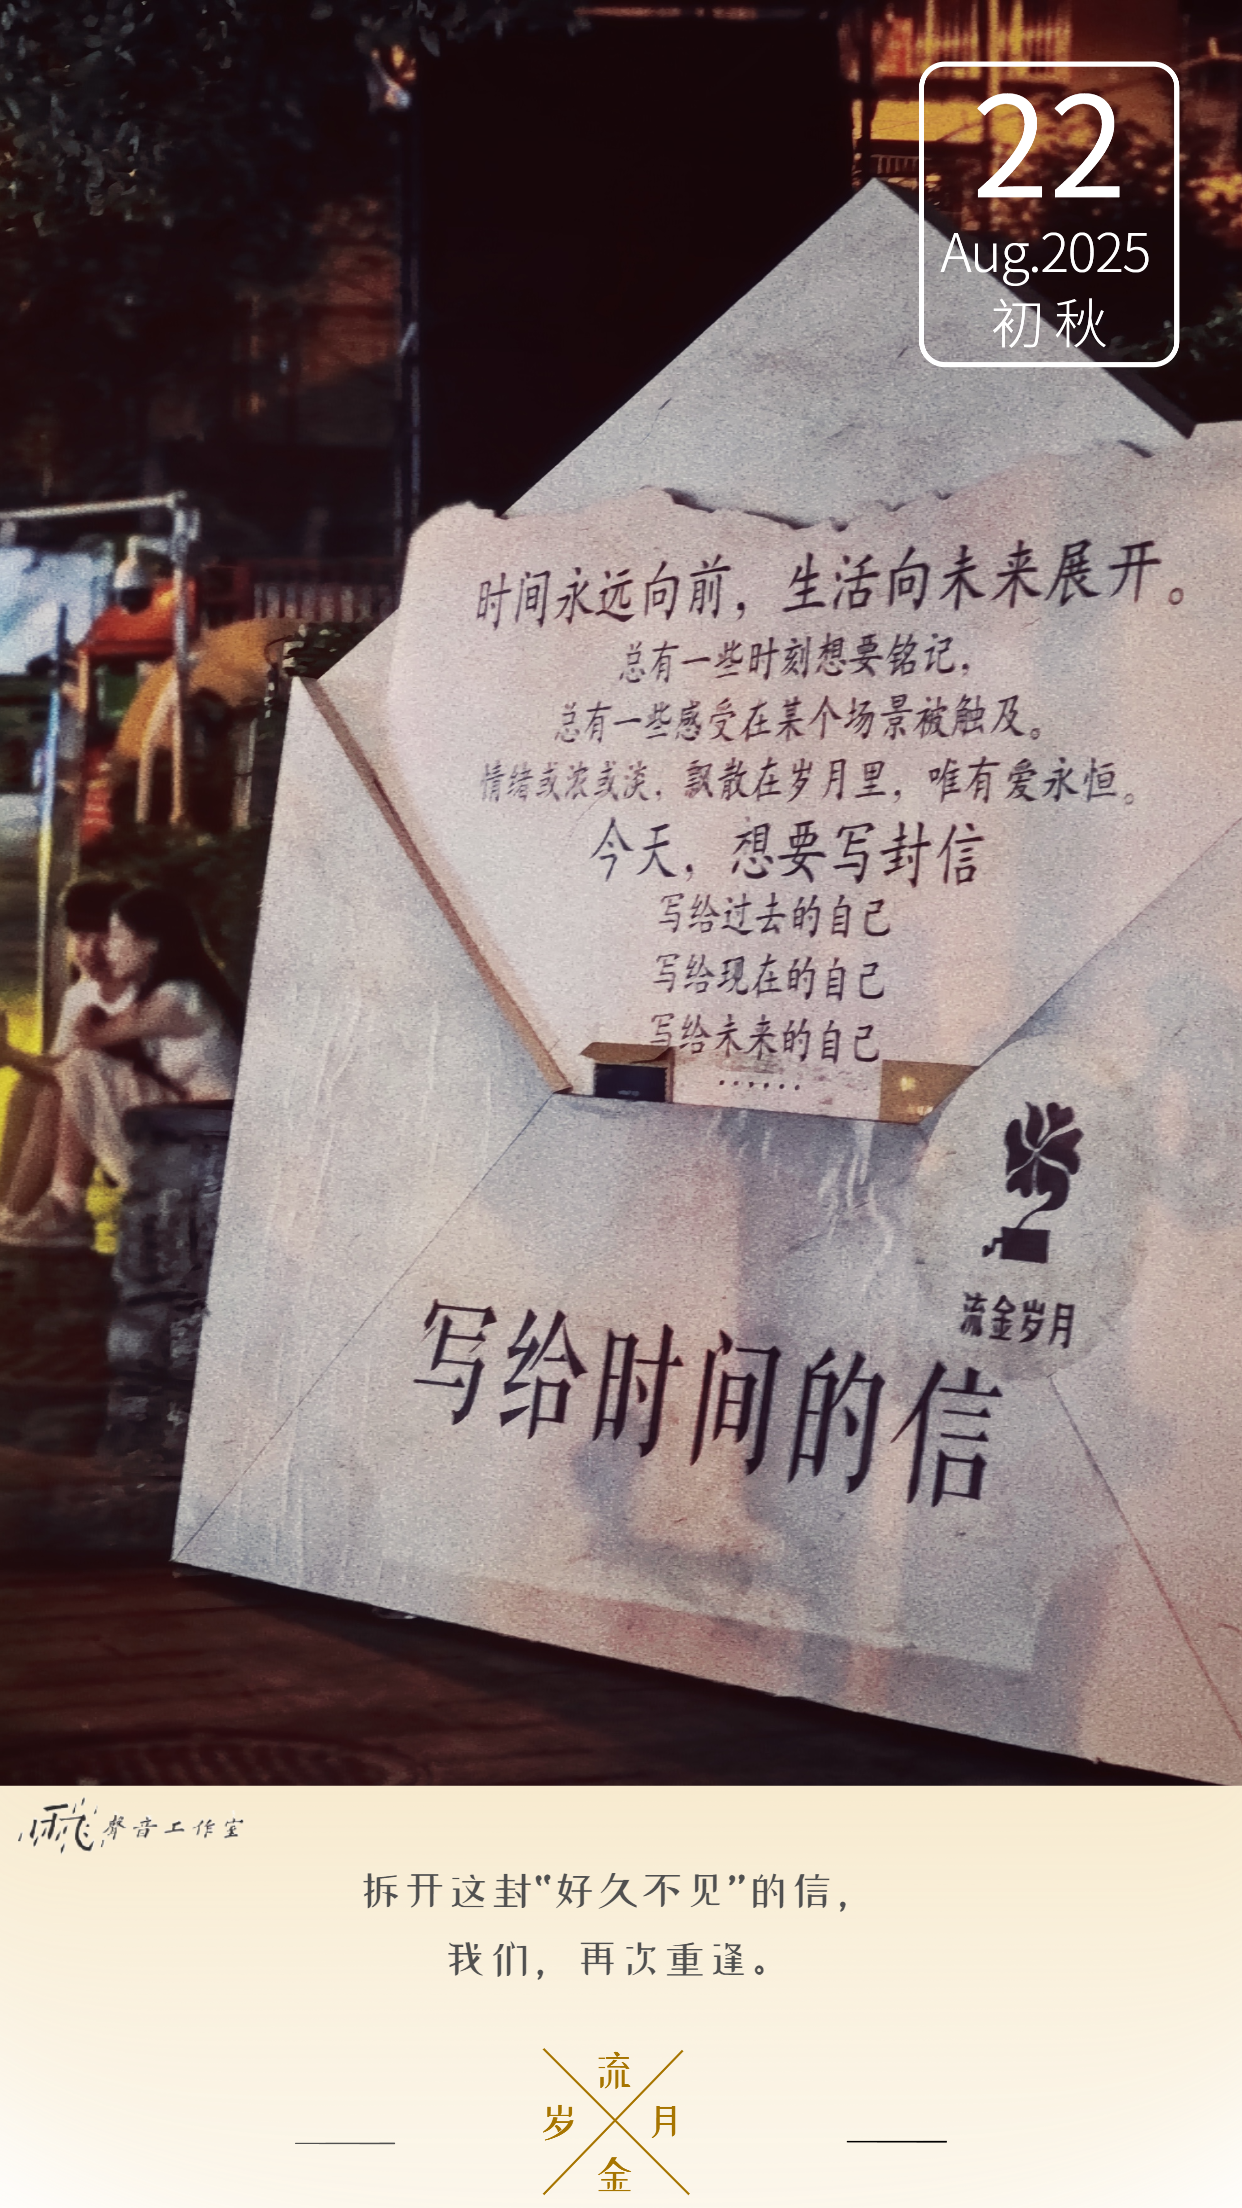 22
Aug.2025
初秋
时间永远向前，生活向未来展开。
总有一些时刻想要铭记，
总有一些感受在某个场景被触及。
情绪或浓或淡，飘散在岁月里，唯有爱永恒。
今天，想要写封信
写给过去的自己
写给现在的自己
写给未来的自己
······
流金岁月
写给时间的信
聲音工作室
拆开这封“好久不见”的信，
我们，再次重逢。
流
岁月
金